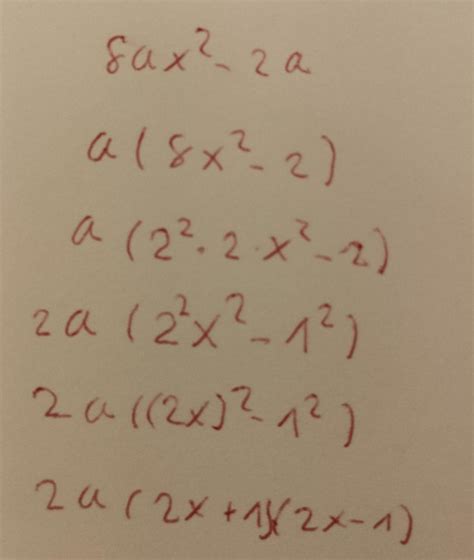 8ax² - 2a
a (8x² - 2)
a (2² · 2 · x² - 2)
2a (2²x² - 1²)
2a ((2x)² - 1²)
2a (2x + 1)(2x - 1)